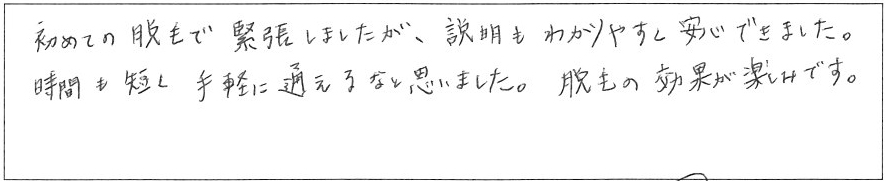 初めての脱毛で緊張しましたが、説明もわかりやすく安心できました。
時間も短く手軽に通えるなと思いました。脱毛の効果が楽しみです。